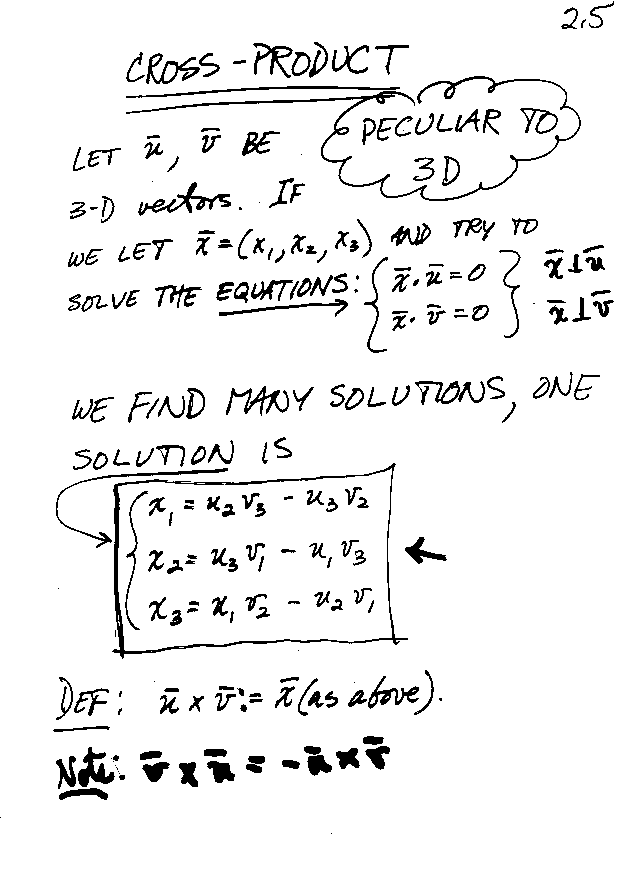 2.5
CROSS-PRODUCT
PECULIAR TO
3D
LET ū, v̄ BE
3-D vectors. IF
WE LET x̄ = (x₁, x₂, x₃) AND TRY TO
SOLVE THE EQUATIONS: { x̄ · ū = 0 } x̄ ⊥ ū
x̄ · v̄ = 0 x̄ ⊥ v̄
WE FIND MANY SOLUTIONS, ONE
SOLUTION IS
x₁ = u₂v₃ - u₃v₂
x₂ = u₃v₁ - u₁v₃
x₃ = x₁v₂ - u₂v₁
DEF: ū × v̄ := x̄ (as above).
Note: v̄ × ū = -ū × v̄